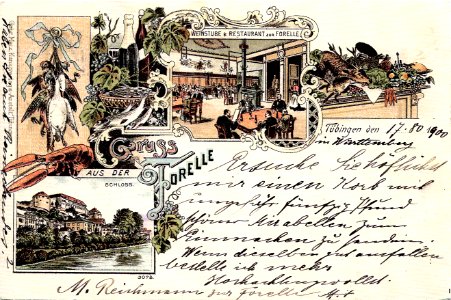 WEINSTUBE & RESTAURANT ZUR FORELLE
Tübingen den 17. 80 1900
in Württemberg
Gruss
AUS DER
FORELLE
SCHLOSS.
Ersuche höflichst
mir einen Korb mit
ungefähr fünfzig Pfund
schöne Mirabellen zum
Einmachen zu senden
Wenn dieselben gut ausfallen
bestelle ich mehr
Hochachtungsvollst
M. Reichmann zur Forelle